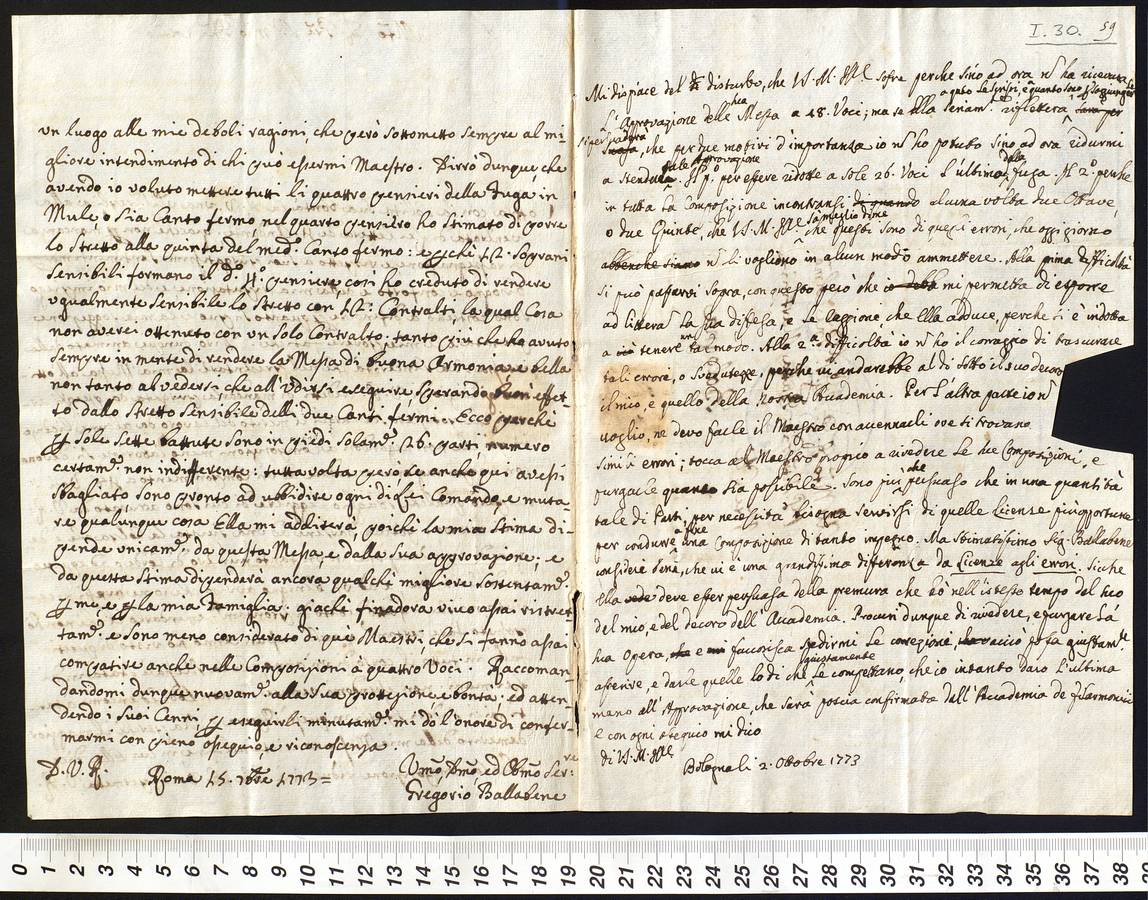 I. 30. 59
un luogo alle mie deboli ragioni, che però sottometto sempre al mi-
gliore intendimento di chi può essermi Maestro. Dirrò dunque che
avendo io voluto mettere tutti li quattro pensieri della Fuga in
Mule, o sia Canto fermo, nel quarto pensiero ho stimato di porre
lo stretto alla quinta del med.º Canto fermo: e perchè 12. Soprani
sensibili formano il d.º 4.º pensiere, così ho creduto di rendere
ugualmente sensibile lo stretto con 12: Contralti, la qual cosa
non averei ottenuto con un solo Contralto: tanto più che ho avuto
sempre in mente di rendere la Messa di buona Armonia e bella
non tanto al vedersi, che all'udirsi eseguire sperando buon effet-
to dallo stretto sensibile delli due Canti fermi. Ecco perchè
p sole sette battute sono in piedi solam.e 26. parti, numero
certam.e non indifferente: tutta volta però se anche qui avessi
sbagliato sono pronto ad ubbidire ogni di Lei Comando, e muta-
re qualunque cosa Ella mi additerà, poichè la mia stima di-
pende unicam.e da questa Messa, e dalla sua approvazione; e
da questa stima dipenderà ancora qualche migliore sostentam.º
p me, e p la mia famiglia: giachè finadora vivo assai ristret-
tam.e e sono meno considerato di què Maestri, che si fanno assai
compatire anche nelle Composizioni a quattro Voci. Raccoman-
dandomi dunque nuovam.e alla sua protezione, e bontà; ed atten-
dendo i suoi Cenni p eseguirli minutam.e mi dò l'onore di confer-
marmi con pieno ossequio, e riconoscenza
D. V. R. Roma 15. 7bre 1773=
Umo, Dmo, ed Obmo Ser.re
Gregorio Ballabene
Mi dispiace del disturbo, che V. S. M. Ill sofre perche sino ad ora ñ ha ricevuta
a quto le scrissi, e quanto sono p soggiunger
l'Aprovazione della sua Messa a 48. Voci; ma se Ella seriam.e rifletterà
si persuaderà
che per due motivi d'importanza io ñ ho potuto sino ad ora ridurmi
tale Approvazione
a stendere. Il p.º per essere ridotte a sole 26. Voci l'ultima della Fuga. Il 2.º perche
in tutta la composizione incontransi alcuna volta due Ottave,
o due Quinte, che V. S. M. Ill sa meglio di me che questi sono di quegli errori, che oggigiorno
abbenche siano ñ si vogliono in alcun modo ammettere. Alla prima difficoltà
si può passarvi sopra, con questo però che mi permetta di esporre
ad litteram la sua difesa, e le raggione che Ella adduce, perche si è indotta
a tenere un tal modo. Alla 2.a difficoltà io ñ ho il coraggio di trascurare
tali errori, o svedutezze, perche vi andarebbe al di sotto il suo decoro
il mio, e quello della nostra Accademia. Per l'altra parte io ñ
voglio, ne devo farle il Maestro con accennarle ove si trovano
simili errori; tocca al Maestro proprio a rivedere le sue Composizioni, e
purgarle quanto sia possibile. Sono più che persuaso che in una quantità
tale di Parti, per necessità bisogna servirsi di quelle Licenze più opportune
per condurre a fine una Composizione di tanto impegno. Ma Stimatissimo Sig. Ballabene
consideri bene, che vi è una grandissima differenza da Licenze agli errori. Sicche
Ella deve esser persuasa della premura che io ò nell'istesso tempo del suo
del mio, e del decoro dell'Accademia. Procuri dunque di rivedere, e purgare la
sua Opera, e favorisca spedirmi le correzione, acciò possa giustam.te
giustamente
asserire, e darle quelle lodi che le competano, che io intanto darò l'ultima
mano all'Approvazione, che sarà poscia confirmata dell'Accademia de Filarmonici
e con ogni ossequio mi dico
di V. S. M. Ill
Bologna li 2. Ottobre 1773